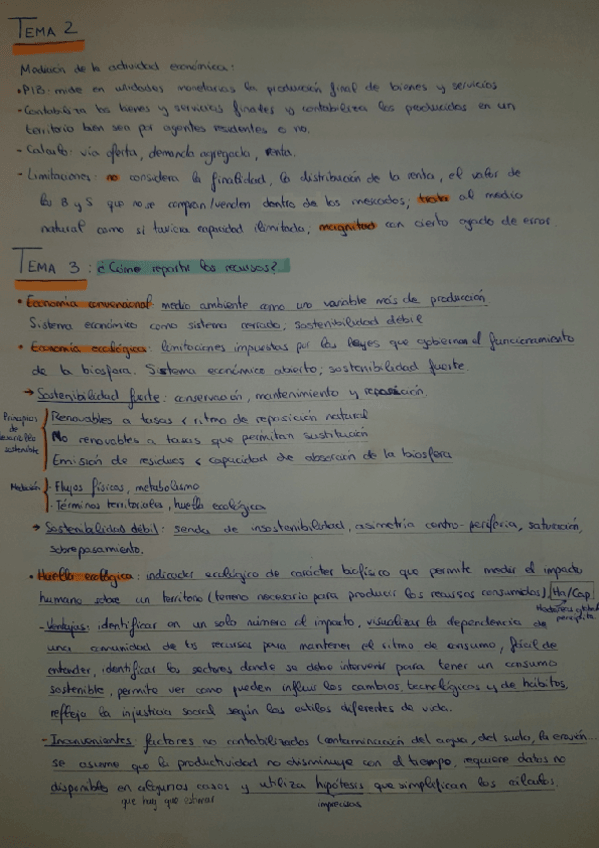 TEMA 2
Medición de la actividad económica:
• PIB: mide en unidades monetarias la producción final de bienes y servicios
- Contabiliza los bienes y servicios finales y contabiliza los producidos en un
territorio bien sea por agentes residentes o no.
- Calculo: vía oferta, demanda agregada, renta.
- Limitaciones: no considera la finalidad, la distribución de la renta, el valor de
los B y S que no se compran/venden dentro de los mercados; trata al medio
natural como si tuviera capacidad ilimitada; magnitud con cierto grado de error.
TEMA 3: ¿Cómo repartir los recursos?
• Economía convencional: medio ambiente como una variable más de producción
Sistema económico como sistema cerrado, sostenibilidad débil
• Economía ecológica: limitaciones impuestas por las leyes que gobiernan el funcionamiento
de la biosfera. Sistema económico abierto; sostenibilidad fuerte.
→ Sostenibilidad fuerte: conservación, mantenimiento y reposición.
Principios
de
desarrollo
sostenible
Renovables a tasas < ritmo de reposición natural
No renovables a tasas que permitan sustitución
Emisión de residuos < capacidad de absorción de la biosfera
Medición
- Flujos físicos, metabolismo
- Términos territoriales, huella ecológica
→ Sostenibilidad débil: senda de insostenibilidad, asimetría centro-periferia, saturación,
sobrepasamiento.
• Huella ecológica: indicador ecológico de carácter biofísico que permite medir el impacto
humano sobre un territorio (terreno necesario para producir los recursos consumidos) Ha/Cap
Hectáreas globales
per cápita
- Ventajas: identificar en un solo número el impacto, visualizar la dependencia de
una comunidad de los recursos para mantener el ritmo de consumo, fácil de
entender, identificar los sectores donde se debe intervenir para tener un consumo
sostenible, permite ver como pueden influir los cambios tecnológicos y de hábitos,
refleja la injusticia social según los estilos diferentes de vida.
- Inconvenientes: factores no contabilizados (contaminación del agua, del suelo, la erosión...
se asume que la productividad no disminuye con el tiempo, requiere datos no
disponibles en algunos casos y utiliza hipótesis que simplifican los cálculos.
que hay que estimar
imprecisas